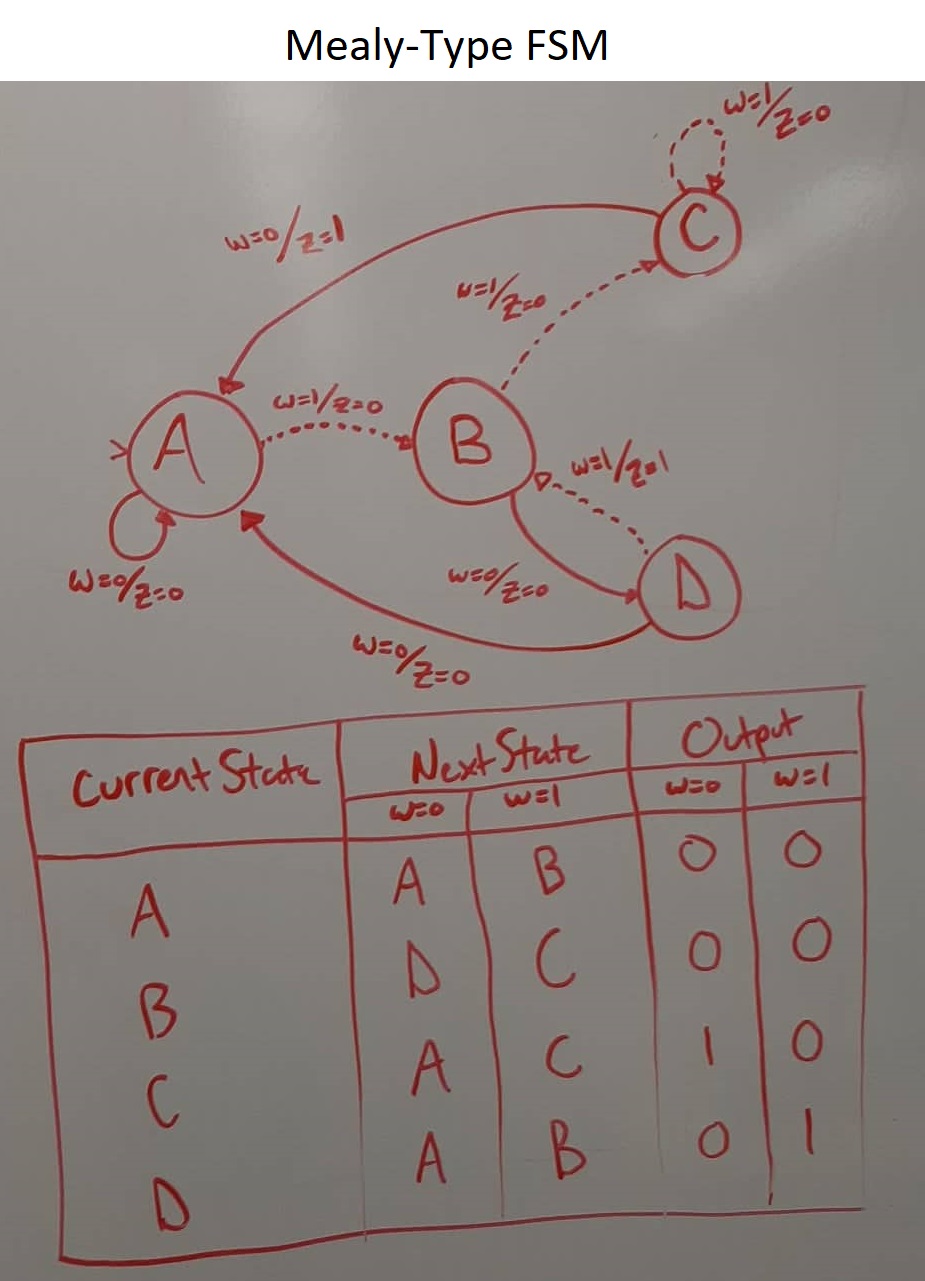 Mealy-Type FSM
w=1/z=0
C
w=0/z=1
w=1/z=0
A
w=1/z=0
B
w=1/z=1
w=0/z=0
w=0/z=0
D
w=0/z=0
Current State Next State Output
w=0 w=1 w=0 w=1
A A B 0 0
B D C 0 0
C A C 1 0
D A B 0 1